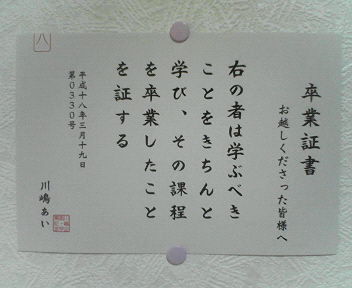 卒業証書
お越しくださった皆様へ
右の者は学ぶべき
ことをきちんと
学び、その課程
を卒業したこと
を証する
平成十八年三月十九日
第0330号
川嶋あい
八